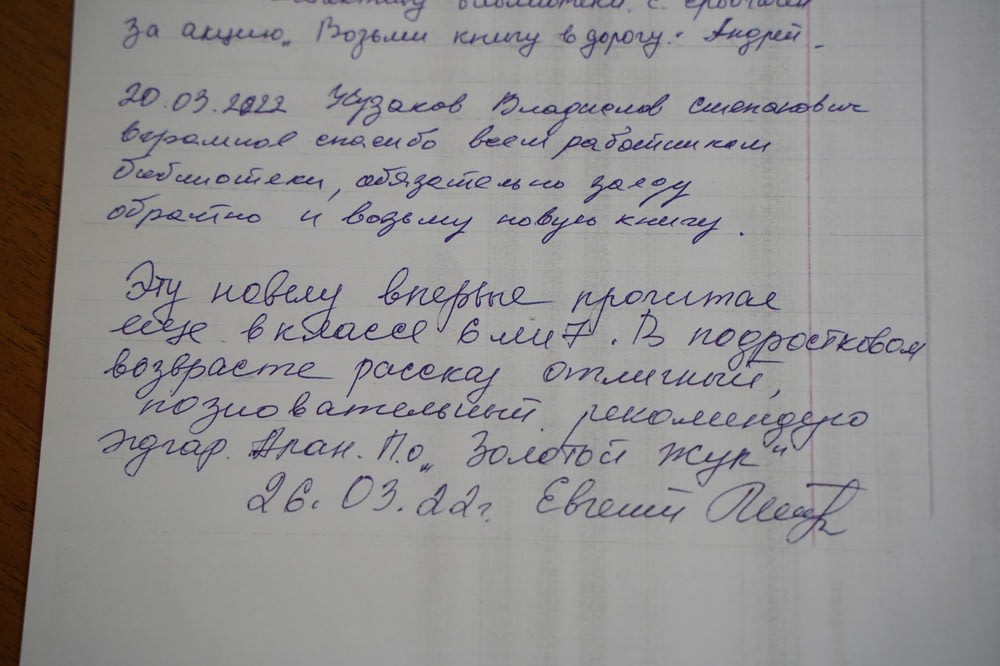 библиотеки с
за акцию „Возьми книгу в дорогу." Андрей.
20.03.2022 Кузаков Владислав Степанович
огромное спасибо всем работникам
библиотеки, обязательно заеду
обратно и возьму новую книгу.
Эту новелу впервые прочитал
еще в классе 6 ли 7. В подростковом
возврасте рассказ отличный,
позновательный. рекомендую
Эдгар. Алан. По „Золотой Жук"
26.03.22г. Евгений